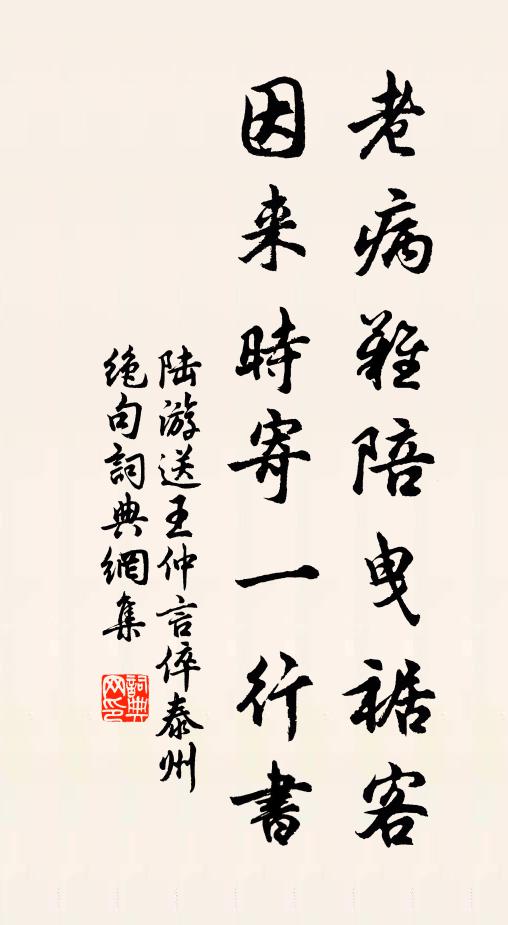 老病難陪曳裾客
因来時寄一行書
陆游送王仲言倅泰州
绝句詞典網集
詞典
网印